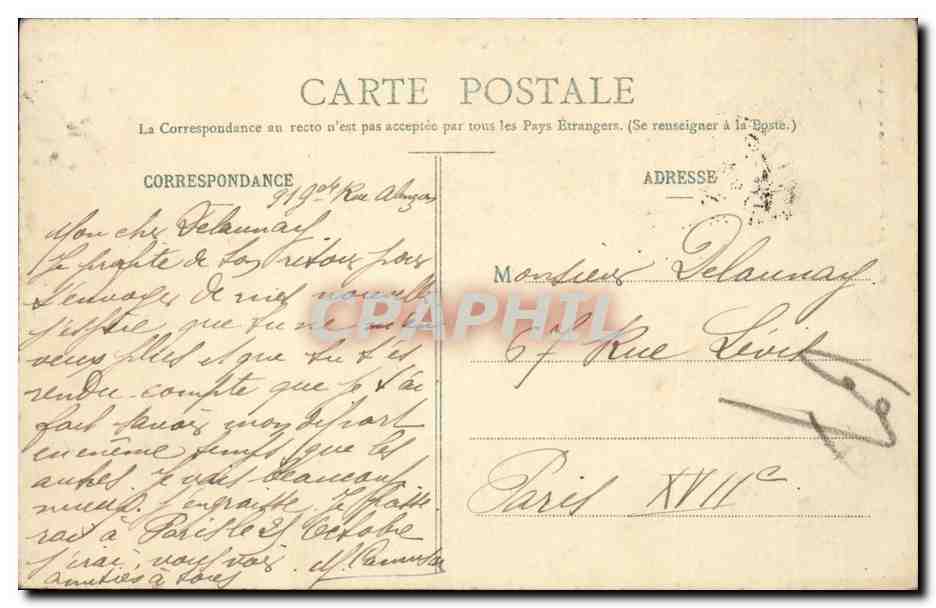 CARTE POSTALE
La Correspondance au recto n'est pas acceptée par tous les Pays Étrangers. (Se renseigner à la Poste.)
CORRESPONDANCE
919 gde Rue Alençon
Mon cher Delaunay
Je profite de ton retour pour
t'envoyer de mes nouvelles
j'espère que tu ne m'en
veux plus et que tu t'es
rendu compte que je t'ai
fait savoir mon départ
en même temps que les
autres. Je vais beaucoup
mieux. J'engraisse. Je
rai à Paris le 25 Octobre
j'irai vous voir
amitiés à tous
ADRESSE
Monsieur Delaunay
67 Rue Lévis
Paris XVIIe
CPAPHIL